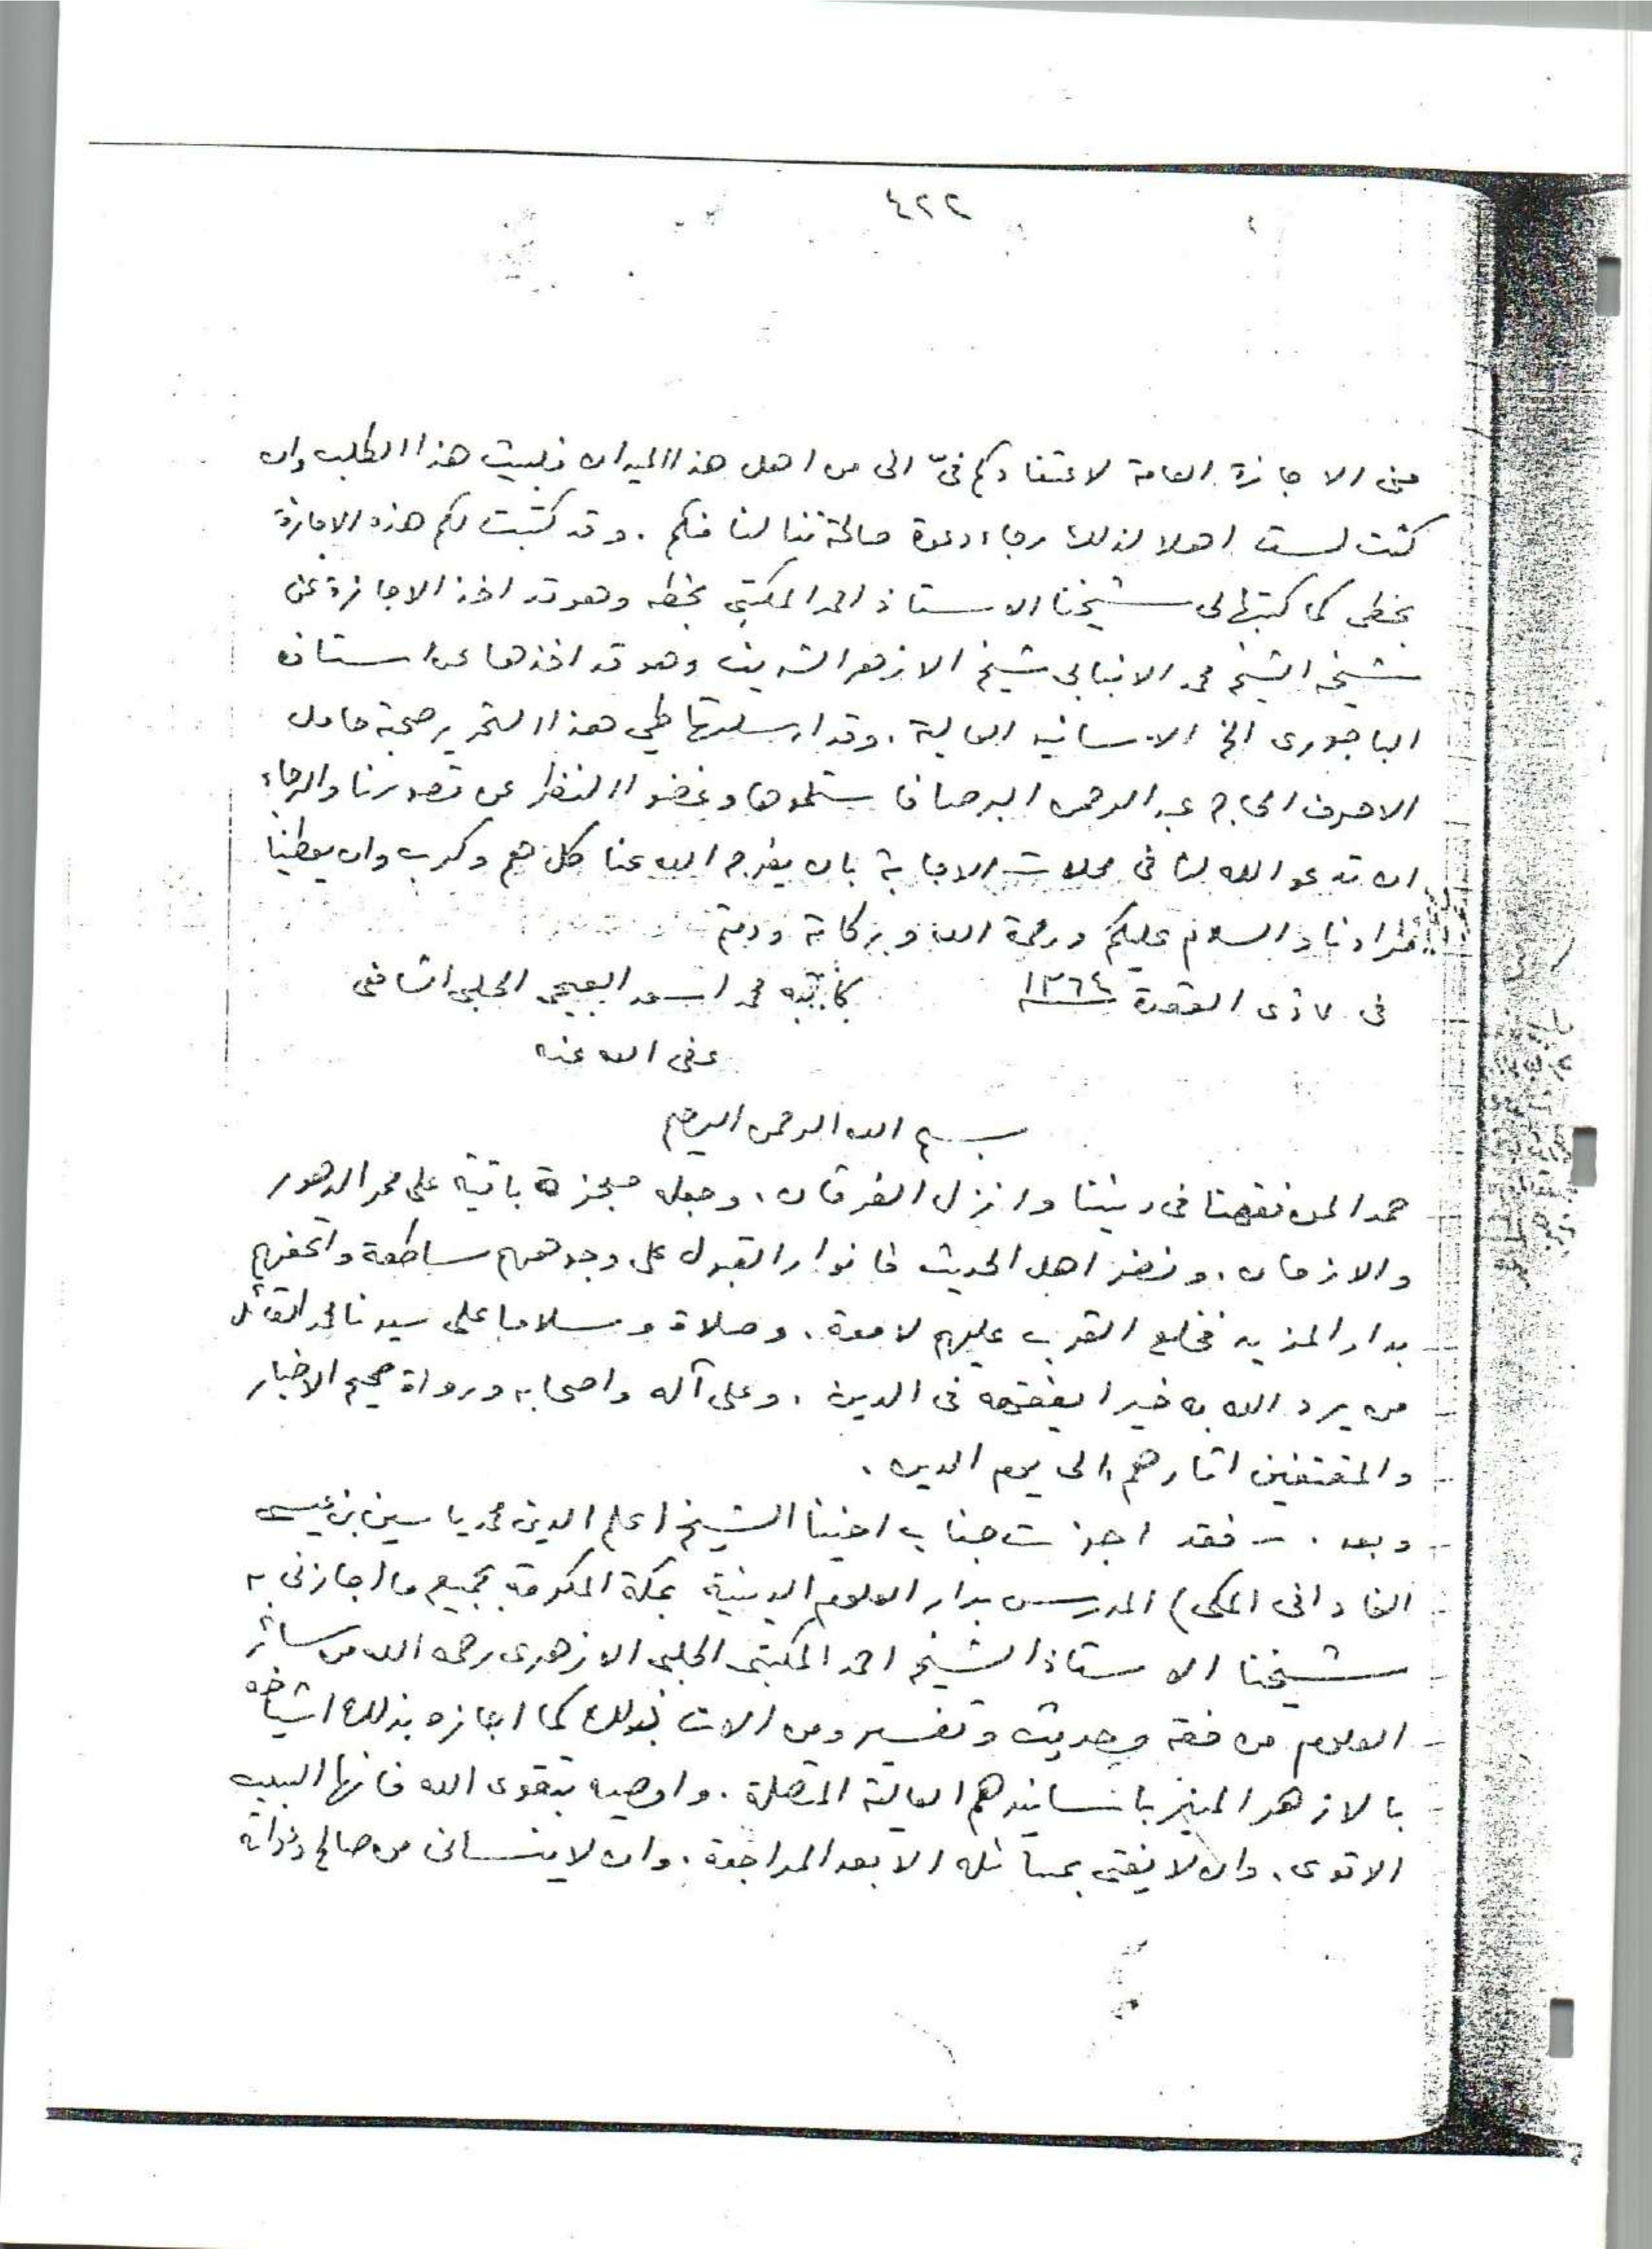 ٤٢٢
منى الاجازة العامة لاعتقادكم فىّ انى من اهل هذا الميدان فلبيت هذا الطلب وان
كنت لست اهلا لذلك رجاء دعوة صالحة تنالنا منكم . وقد كتبت لكم هذه الاجازة
بخطى كما كتبها لى شيخنا الاستاذ احمد المكتبى بخطه وهو قد اخذ الاجازة عن
شيخه الشيخ محمد الانبابى شيخ الازهر الشريف وهو قد اخذها عن استاذه
الباجورى الخ الاسانيد العالية . وقد ارسلتها طي هذا التحرير صحبة حامل
الاحرف الحاج عبد الرحمن البرصا فاستلموها وغضوا النظر عن قصورنا والرجاء
ان تدعو الله لنا فى محلات الاجابة بان يفرج الله عنا كل هم وكرب وان يعطينا
مرادنا والسلام عليكم ورحمة الله وبركاته ودمتم
فى ٧ ذى القعدة ١٣٦٤ كاتبه محمد اسعد العبجى الحلبى الشافعى
عفى الله عنه
بسم الله الرحمن الرحيم
حمدا لمن فقهنا فى ديننا وانزل الفرقان ، وجعله معجزة باقية على ممر الدهور
والازمان . ونضر اهل الحديث فانوار القبول على وجوههم ساطعة واتحفهم
بدار المزيد فخلع القرب عليهم لامعة . وصلاة وسلاما على سيدنا محمد القائل
من يرد الله به خيرا يفقهه فى الدين ، وعلى آله واصحابه ورواة صحيح الاخبار
والمقتفين اثارهم الى يوم الدين .
وبعد . – فقد اجزت جناب اخينا الشيخ (علم الدين محمد ياسين بن عيسى
الفادانى المكى) المدرس بدار العلوم الدينية بمكة المكرمة بجميع ما اجازنى به
شيخنا الاستاذ الشيخ احمد المكتبى الحلبى الازهرى رحمه الله من سائر
العلوم من فقه وحديث وتفسير ومن الات لذلك كما اجازه بذلك اشياخه
بالازهر المنير باسانيدهم العالية المتصلة . واوصيه بتقوى الله فانها السبب
الاقوى . وان لا يفتى بمسائله الا بعد المراجعة . وان لا ينسانى من صالح دعواته